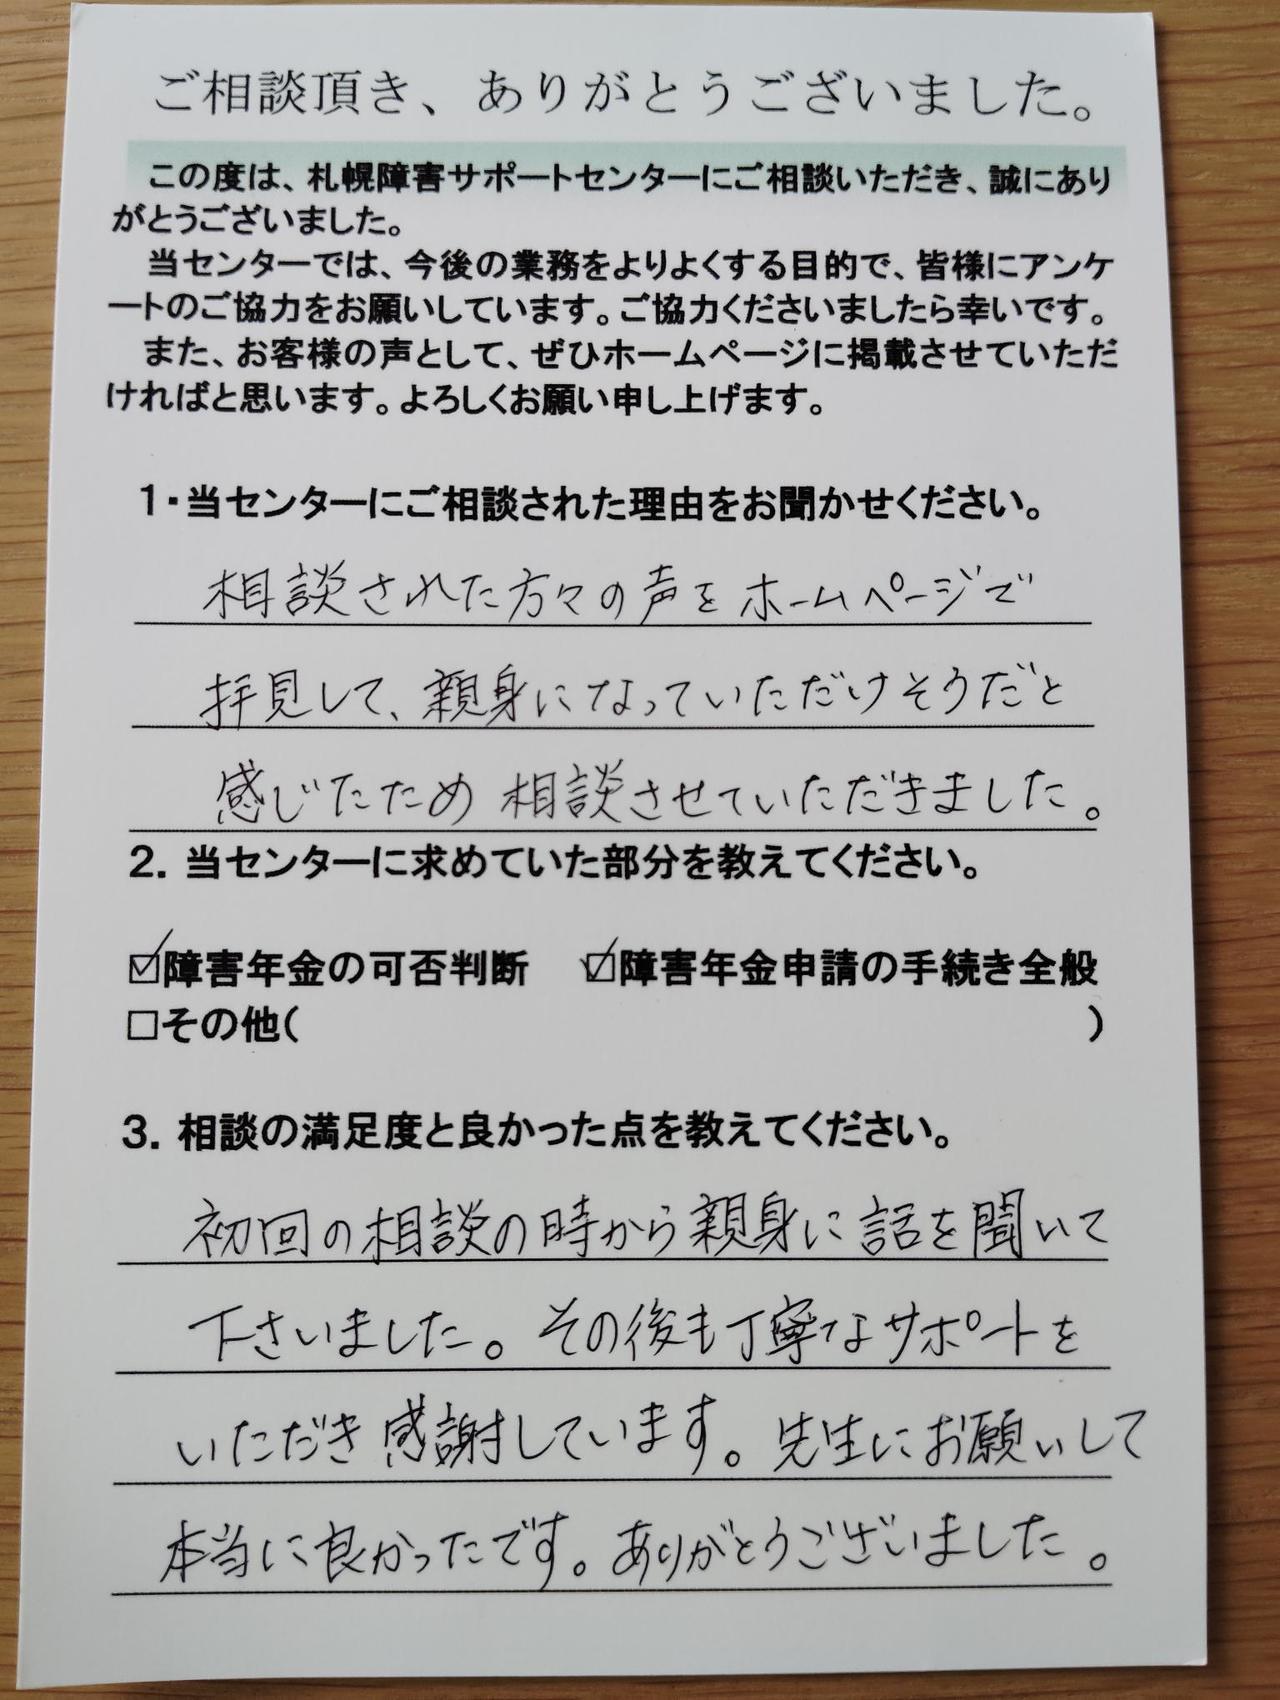 ご相談頂き、ありがとうございました。
この度は、札幌障害サポートセンターにご相談いただき、誠にあり
がとうございました。
当センターでは、今後の業務をよりよくする目的で、皆様にアンケ
ートのご協力をお願いしています。ご協力くださいましたら幸いです。
また、お客様の声として、ぜひホームページに掲載させていただ
ければと思います。よろしくお願い申し上げます。
1・当センターにご相談された理由をお聞かせください。
相談された方々の声をホームページで
拝見して、親身になっていただけそうだと
感じたため相談させていただきました。
2．当センターに求めていた部分を教えてください。
☑障害年金の可否判断　☑障害年金申請の手続き全般
□その他(　)
3．相談の満足度と良かった点を教えてください。
初回の相談の時から親身に話を聞いて
下さいました。その後も丁寧なサポートを
いただき感謝しています。先生にお願いして
本当に良かったです。ありがとうございました。